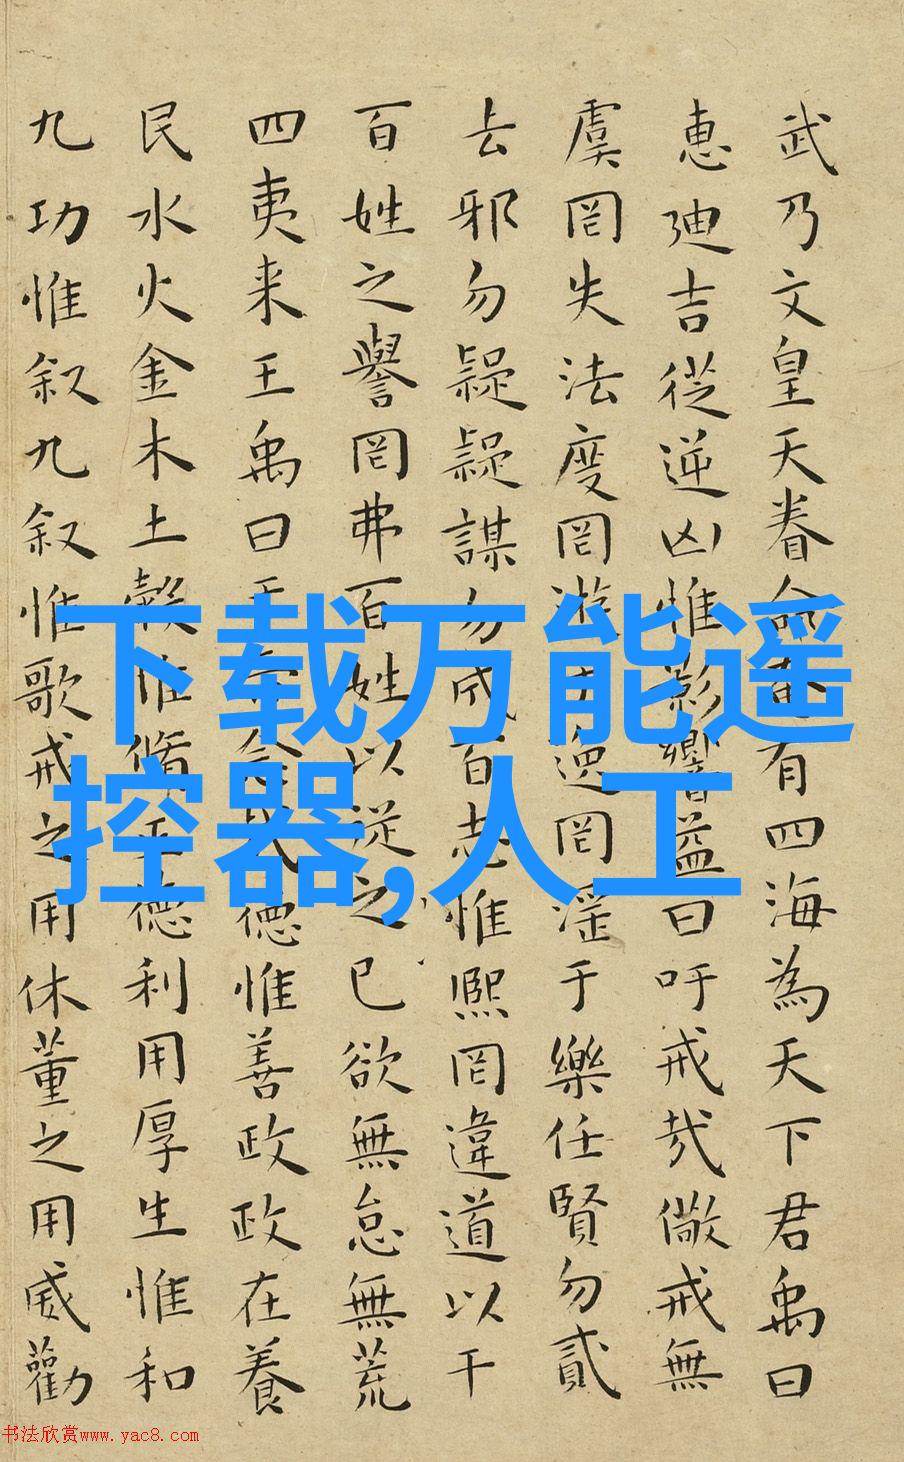 武乃文皇天眷命奄有四海為天下君禹曰
惠迪吉從逆凶惟影響益曰吁戒哉儆戒無
虞罔失法度罔遊于逸罔淫于樂任賢勿貳
去邪勿疑疑謀勿成百志惟熙罔違道以干
百姓之譽罔弗百姓以從之已欲無怠無荒
四夷来王禹曰念哉德惟善政政在養
民水火金木土穀惟脩正德利用厚生惟和
九功惟叙九叙惟歌戒之用休董之用威勸
下载万能遥
控器,人工
书法欣赏www.yac8.com